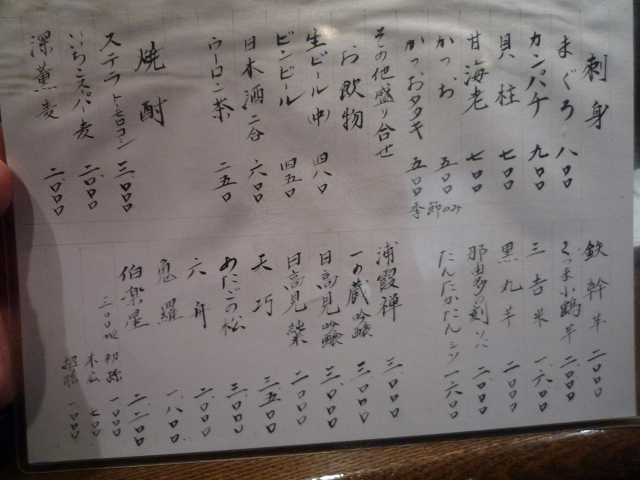 刺身
まぐろ 八〇〇
カンパチ 九〇〇
貝柱 七〇〇
甘海老 七〇〇
かつお 五〇〇
かつおタタキ 五〇〇 季節のみ
その他盛り合せ
お飲物
生ビール(中) 四八〇
ビンビール 四五〇
日本酒二合 六〇〇
ウーロン茶 二五〇
焼酎
ステラトーモロコシ 三〇〇〇
いいちこスーパー麦 二〇〇〇
深薫麦 二〇〇〇
鉄幹芋 二〇〇〇
さつま小鶴芋 二〇〇〇
三吉米 一六〇〇
黒丸芋 二〇〇〇
那由多の刻ソバ 二〇〇〇
たんたかたんシソ 一六〇〇
浦霞禅 三〇〇〇
一の蔵吟醸 三〇〇〇
日高見吟醸 三〇〇〇
日高見紫 二〇〇〇
天巧 三五〇〇
あたごの松 三〇〇〇
六舟 二〇〇〇
鬼羅 一八〇〇
伯楽星 二二〇〇
三〇〇ml 初孫 一〇〇〇
七〇〇
一〇〇〇